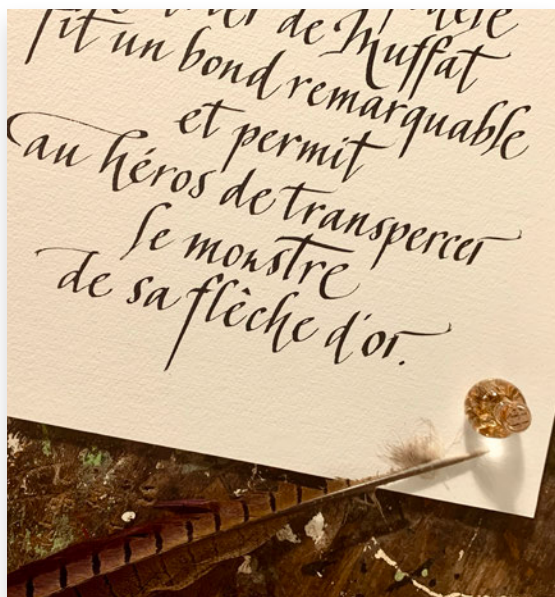 de Muffat
fit un bond remarquable
et permit
au héros de transpercer
le monstre
de sa flêche d'or.